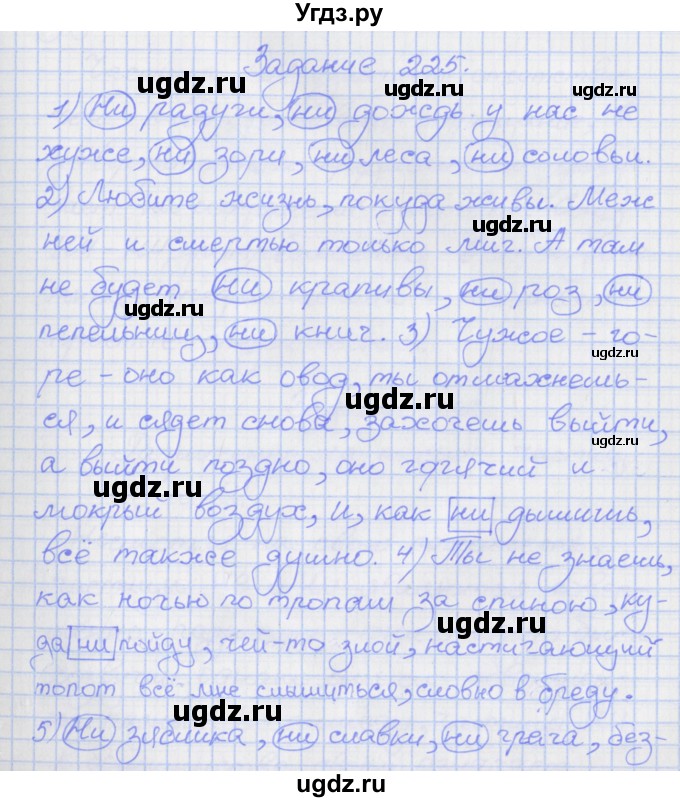 Угдз.ру
Задание 225.
1) Ни радуги, ни дождь у нас не
хуже, ни зори, ни леса, ни соловьи.
2) Любите жизнь, покуда живы. Меж
ней и смертью только миг. А там
не будет ни крапивы, ни роз, ни
пепельниц, ни книг. 3) Чужое - го-
ре - оно как овод, ты отмахнешь-
ся, и сядет снова, захочешь выйти,
а выйти поздно, оно горячий и
мокрый воздух, и, как ни дышишь,
всё также душно. 4) Ты не знаешь,
как ночью по тропам за спиною, ку-
да ни пойду, чей-то злой, настигающий
топот всё мне слышиться, словно в бреду.
5) Ни зяблика, ни славки, ни грача, без-
ugdz.ru
ugdz.ru
ugdz.ru
ugdz.ru
ugdz.ru
ugdz.ru
ugdz.ru
ugdz.ru
ugdz.ru
ugdz.ru
ugdz.ru
ugdz.ru
ugdz.ru